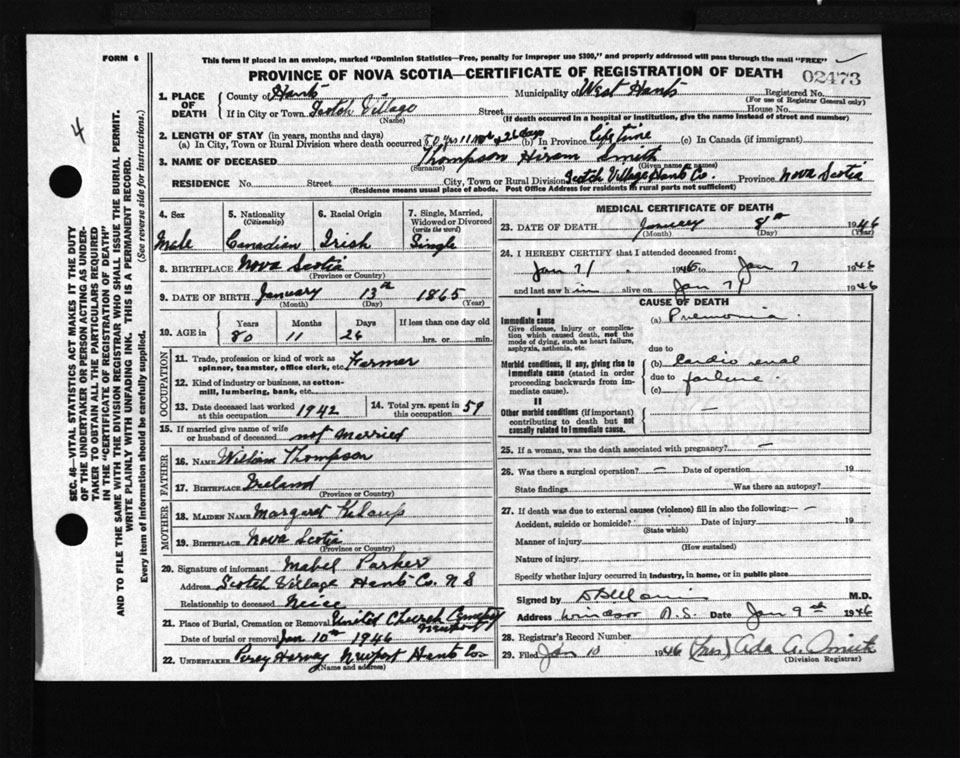 FORM 6
This form if placed in an envelope, marked "Dominion Statistics—Free, penalty for improper use $300," and properly addressed will pass through the mail "FREE"
PROVINCE OF NOVA SCOTIA—CERTIFICATE OF REGISTRATION OF DEATH
02473
4
SEC. 46—VITAL STATISTICS ACT MAKES IT THE DUTY
OF THE UNDERTAKER OR PERSON ACTING AS UNDER-
TAKER TO OBTAIN ALL THE PARTICULARS REQUIRED
IN THE "CERTIFICATE OF REGISTRATION OF DEATH"
AND TO FILE THE SAME WITH THE DIVISION REGISTRAR WHO SHALL ISSUE THE BURIAL PERMIT.
WRITE PLAINLY WITH UNFADING INK. THIS IS A PERMANENT RECORD.
Every item of information should be carefully supplied. (See reverse side for instructions.)
1. PLACE OF DEATH
County of Hants Municipality of West Hants Registered No.
(For use of Registrar General only)
If in City or Town Scotch Village Street House No.
(Name) (If death occurred in a hospital or institution, give the name instead of street and number)
2. LENGTH OF STAY (in years, months and days)
(a) In City, Town or Rural Division where death occurred 80 yrs 11 mos & 26 days (b) In Province Life time (c) In Canada (if immigrant)
3. NAME OF DECEASED Thompson Hiram Smith
(Surname) (Given name or names)
RESIDENCE No. Street City, Town or Rural Division Scotch Village Hants Co. Province Nova Scotia
(Residence means usual place of abode. Post Office Address for residents in rural parts not sufficient)
4. Sex Male
5. Nationality (Citizenship) Canadian
6. Racial Origin Irish
7. Single, Married, Widowed or Divorced (write the word) Single
8. BIRTHPLACE Nova Scotia
(Province or Country)
9. DATE OF BIRTH January 13th 1865
(Month) (Day) (Year)
10. AGE in Years Months Days If less than one day old
80 11 26 hrs. or min.
OCCUPATION
11. Trade, profession or kind of work as spinner, teamster, office clerk, etc. Farmer
12. Kind of industry or business, as cotton-mill, lumbering, bank, etc.
13. Date deceased last worked at this occupation 1942
14. Total yrs. spent in this occupation 59
15. If married give name of wife or husband of deceased not married
FATHER
16. NAME William Thompson
17. BIRTHPLACE Ireland
(Province or Country)
MOTHER
18. MAIDEN NAME Margaret
19. BIRTHPLACE Nova Scotia
(Province or Country)
20. Signature of informant Mabel Parker
Address Scotch Village Hants Co. N S
Relationship to deceased Neice
21. Place of Burial, Cremation or Removal United Church Cemetery Newport
Date of burial or removal Jan 10th 1946
22. UNDERTAKER Percy Harvey Newport Hants Co
(Name and address)
MEDICAL CERTIFICATE OF DEATH
23. DATE OF DEATH January 8th 1946
(Month) (Day) (Year)
24. I HEREBY CERTIFY that I attended deceased from:
Jan 7 1946 to Jan 7 1946
and last saw him alive on Jan 7 1946
CAUSE OF DEATH
I
Immediate cause
Give disease, injury or complication which caused death, not the mode of dying, such as heart failure, asphyxia, asthenia, etc.
(a) Pnemonia
due to
Morbid conditions, if any, giving rise to immediate cause (stated in order proceeding backwards from immediate cause).
(b) Cardio renal
due to failure
(c)
II
Other morbid conditions (if important) contributing to death but not causally related to immediate cause. —
25. If a woman, was the death associated with pregnancy? —
26. Was there a surgical operation? — Date of operation 19
State findings Was there an autopsy?
27. If death was due to external causes (violence) fill in also the following:— —
Accident, suicide or homicide? Date of injury 19
(State which)
Manner of injury
(How sustained)
Nature of injury
Specify whether injury occurred in industry, in home, or in public place
Signed by M.D.
Address Windsor N.S. Date Jan 9th 1946
28. Registrar's Record Number
29. Filed Jan 10 1946 (Mrs) Ada A. Smith
(Division Registrar)